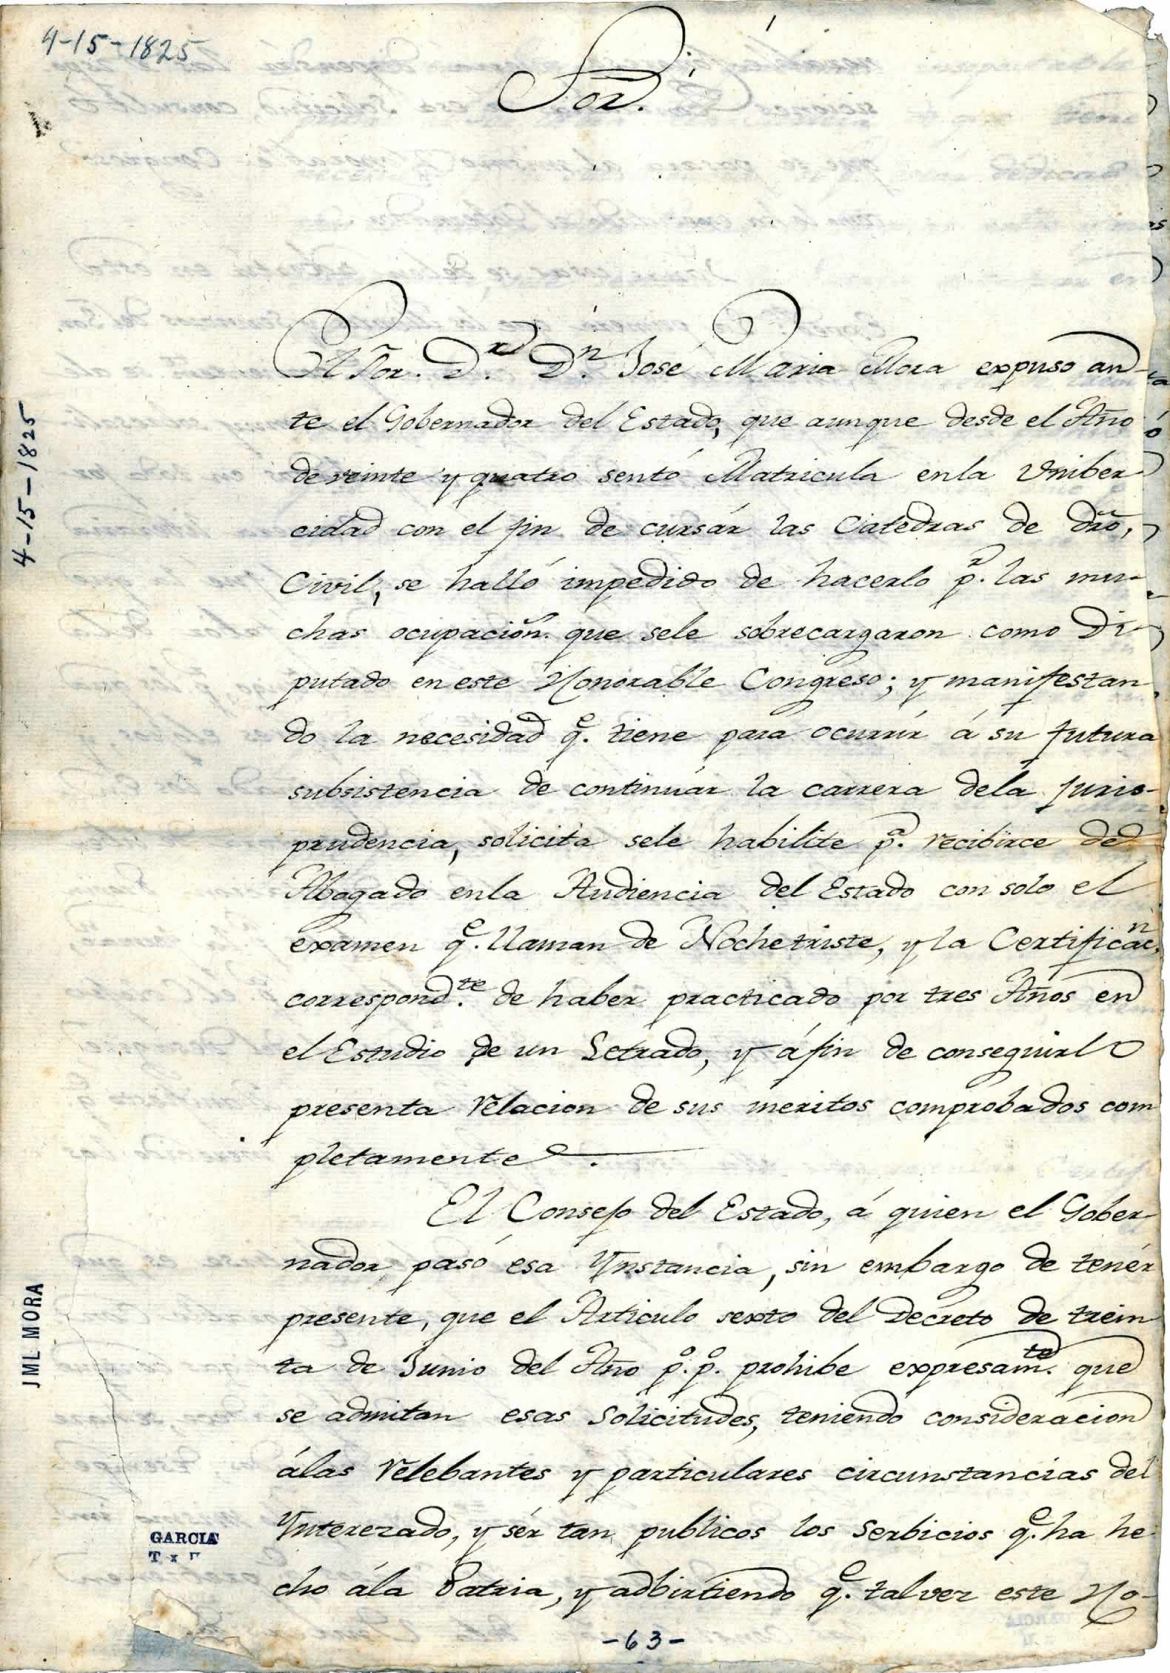 4-15-1825
Sor.
El Sor. D.r D.n José Maria Mora expuso an-
te el Gobernador del Estado, que aunque desde el Año
de veinte y quatro sentó Matricula en la Vniber
cidad con el fin de cursár las Catedras de dro,
Civil, se halló impedido de hacerlo p.r las mu-
chas ocupación. que sele sobrecargaron como Di-
putado en este Honorable Congreso; y manifestan-
do la necesidad q.e tiene para ocurrir á su futura
subsistencia de continuár la carrera dela Juris-
prudencia, solicita sele habilite p.a recibirce de
Abogado enla Audiencia del Estado con solo el
examen q.e llaman de Noche triste, y la Certificac.n
correspond.te de haber practicado por tres Años en
el Estudio de un Letrado, y á fin de conseguirlo
presenta relacion de sus meritos comprobados com
pletamente.
El Consejo del Estado, á quien el Gober-
nador pasó esa Ynstancia, sin embargo de tenér
presente, que el Articulo sexto del Decreto de trein
ta de Junio del Año p.o p.o prohibe expresam.te que
se admitan esas Solicitudes, teniendo consideracion
álas relebantes y particulares circunstancias del
Ynterezado, y sér tan publicos los Serbicios q.e ha he
cho ála Patria, y adbirtiendo q.e tal vez este Ho-
-63-
4-15-1825
JML MORA
GARCIA